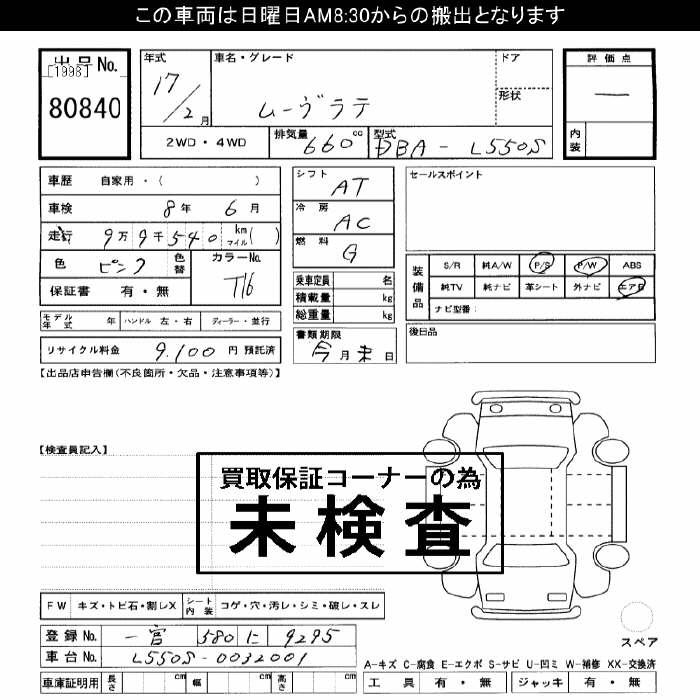 この車両は日曜日AM8:30からの搬出となります
出品No.
[1998]
80840
年式 車名・グレード ドア
17/2月 ムーヴラテ 形状
評価点
—
内装
2WD・4WD 排気量 660cc 型式 DBA-L550S
車歴 自家用・( )
車検 8年 6月
走行 9万9千540 km マイル( )
色 ピンク 色替 カラーNo. T16
保証書 有・無
モデル年式 年 ハンドル 左・右 ディーラー・並行
リサイクル料金 9,100 円 預託済
シフト AT
冷房 AC
燃料 G
乗車定員 名
積載量 kg
総重量 kg
書類期限
今月末日
セールスポイント
装備品
S/R 純A/W P/S P/W ABS
純TV 純ナビ 革シート 外ナビ エアB
ナビ型番:
後日品
【出品店申告欄(不良箇所・欠品・注意事項等)】
【検査員記入】
買取保証コーナーの為
未検査
FW キズ・トビ石・割レX シート内装 コゲ・穴・汚レ・シミ・破レ・スレ
登録No. 一宮 580 に 9295
車台No. L550S-0032001
車庫証明用 長さ cm 幅 cm 高さ cm
スペア
A-キズ C-腐食 E-エクボ S-サビ U-凹ミ W-補修 XX-交換済
工具 有・無 ジャッキ 有・無